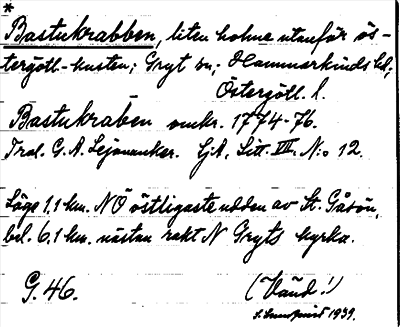 *
Bastukrabben, liten holme utanför ös-
tergötl.-kusten; Gryt sn; Hammarkinds hd;
Östergötl. l.
Bastukraben omkr. 1774-76.
Trol. G. A. Lejonanker. GjA, Litt. VII. N:o 12.
Läge 1.1 km. NÖ östligaste udden av St. Gåsön,
bel. 6.1 km. nästan rakt N Gryts kyrka.
G. 46.
(Vänd!)
1939.